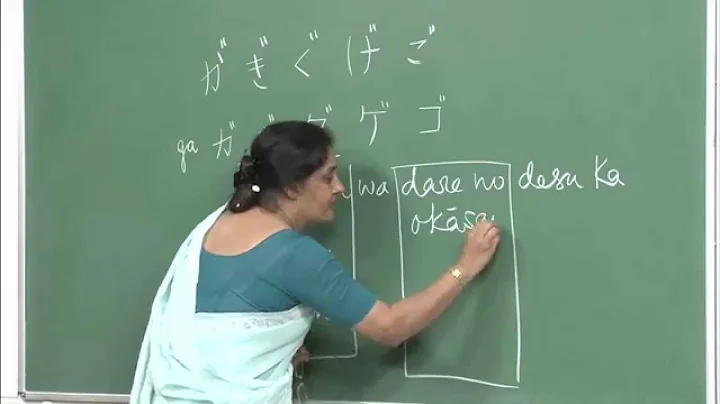 がぎぐげご
ga ガ グ ゲ ゴ
wa dare no desu ka
okāsa